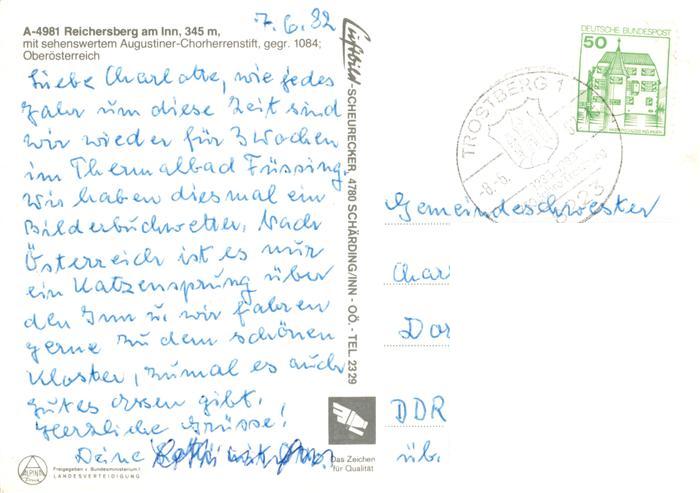 7.6.82
A-4981 Reichersberg am Inn, 345 m,
mit sehenswertem Augustiner-Chorherrenstift, gegr. 1084;
Oberösterreich
Liebe Charlotte, wie jedes
Jahr um diese Zeit sind
wir wieder für 3 Wochen
im Thermalbad Füssing.
Wir haben diesmal ein
Bilderbuchwetter. Nach
Österreich ist es nur
ein Katzensprung über
den Inn u. wir fahren
gerne zu dem schönen
Kloster, zumal es auch
gutes Essen gibt.
Herzliche Grüsse!
Deine
ALPINA
Freigegeben v. Bundesministerium f.
LANDESVERTEIDIGUNG
Luftbild-SCHEURECKER, 4780 SCHÄRDING/INN - OÖ. - TEL. 2329
Das Zeichen
für Qualität
DEUTSCHE BUNDESPOST
50
TROSTBERG 1
-8.-6.
8223
Gemeindeschwester
Char
Dor
DDR
üb.